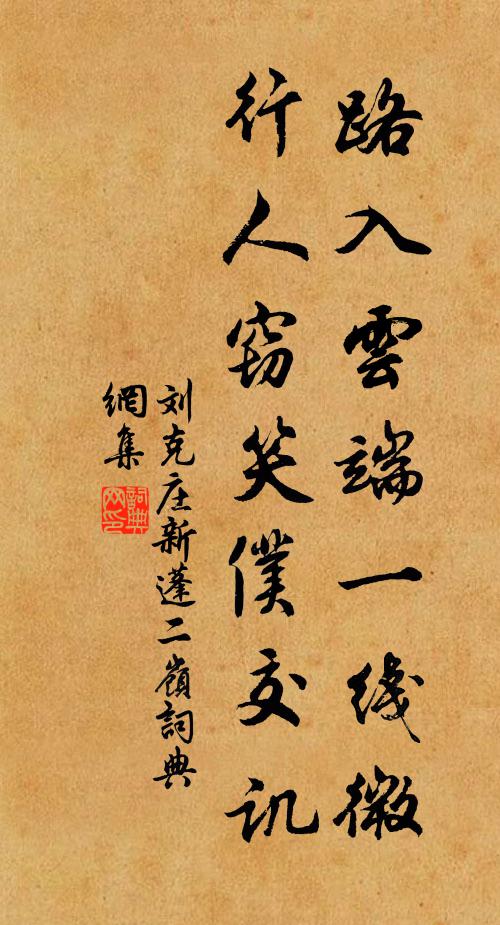 路入雲端一线微
行人窃笑僕交讥
刘克庄新蓬二嶺詞典
網集
詞典
网印